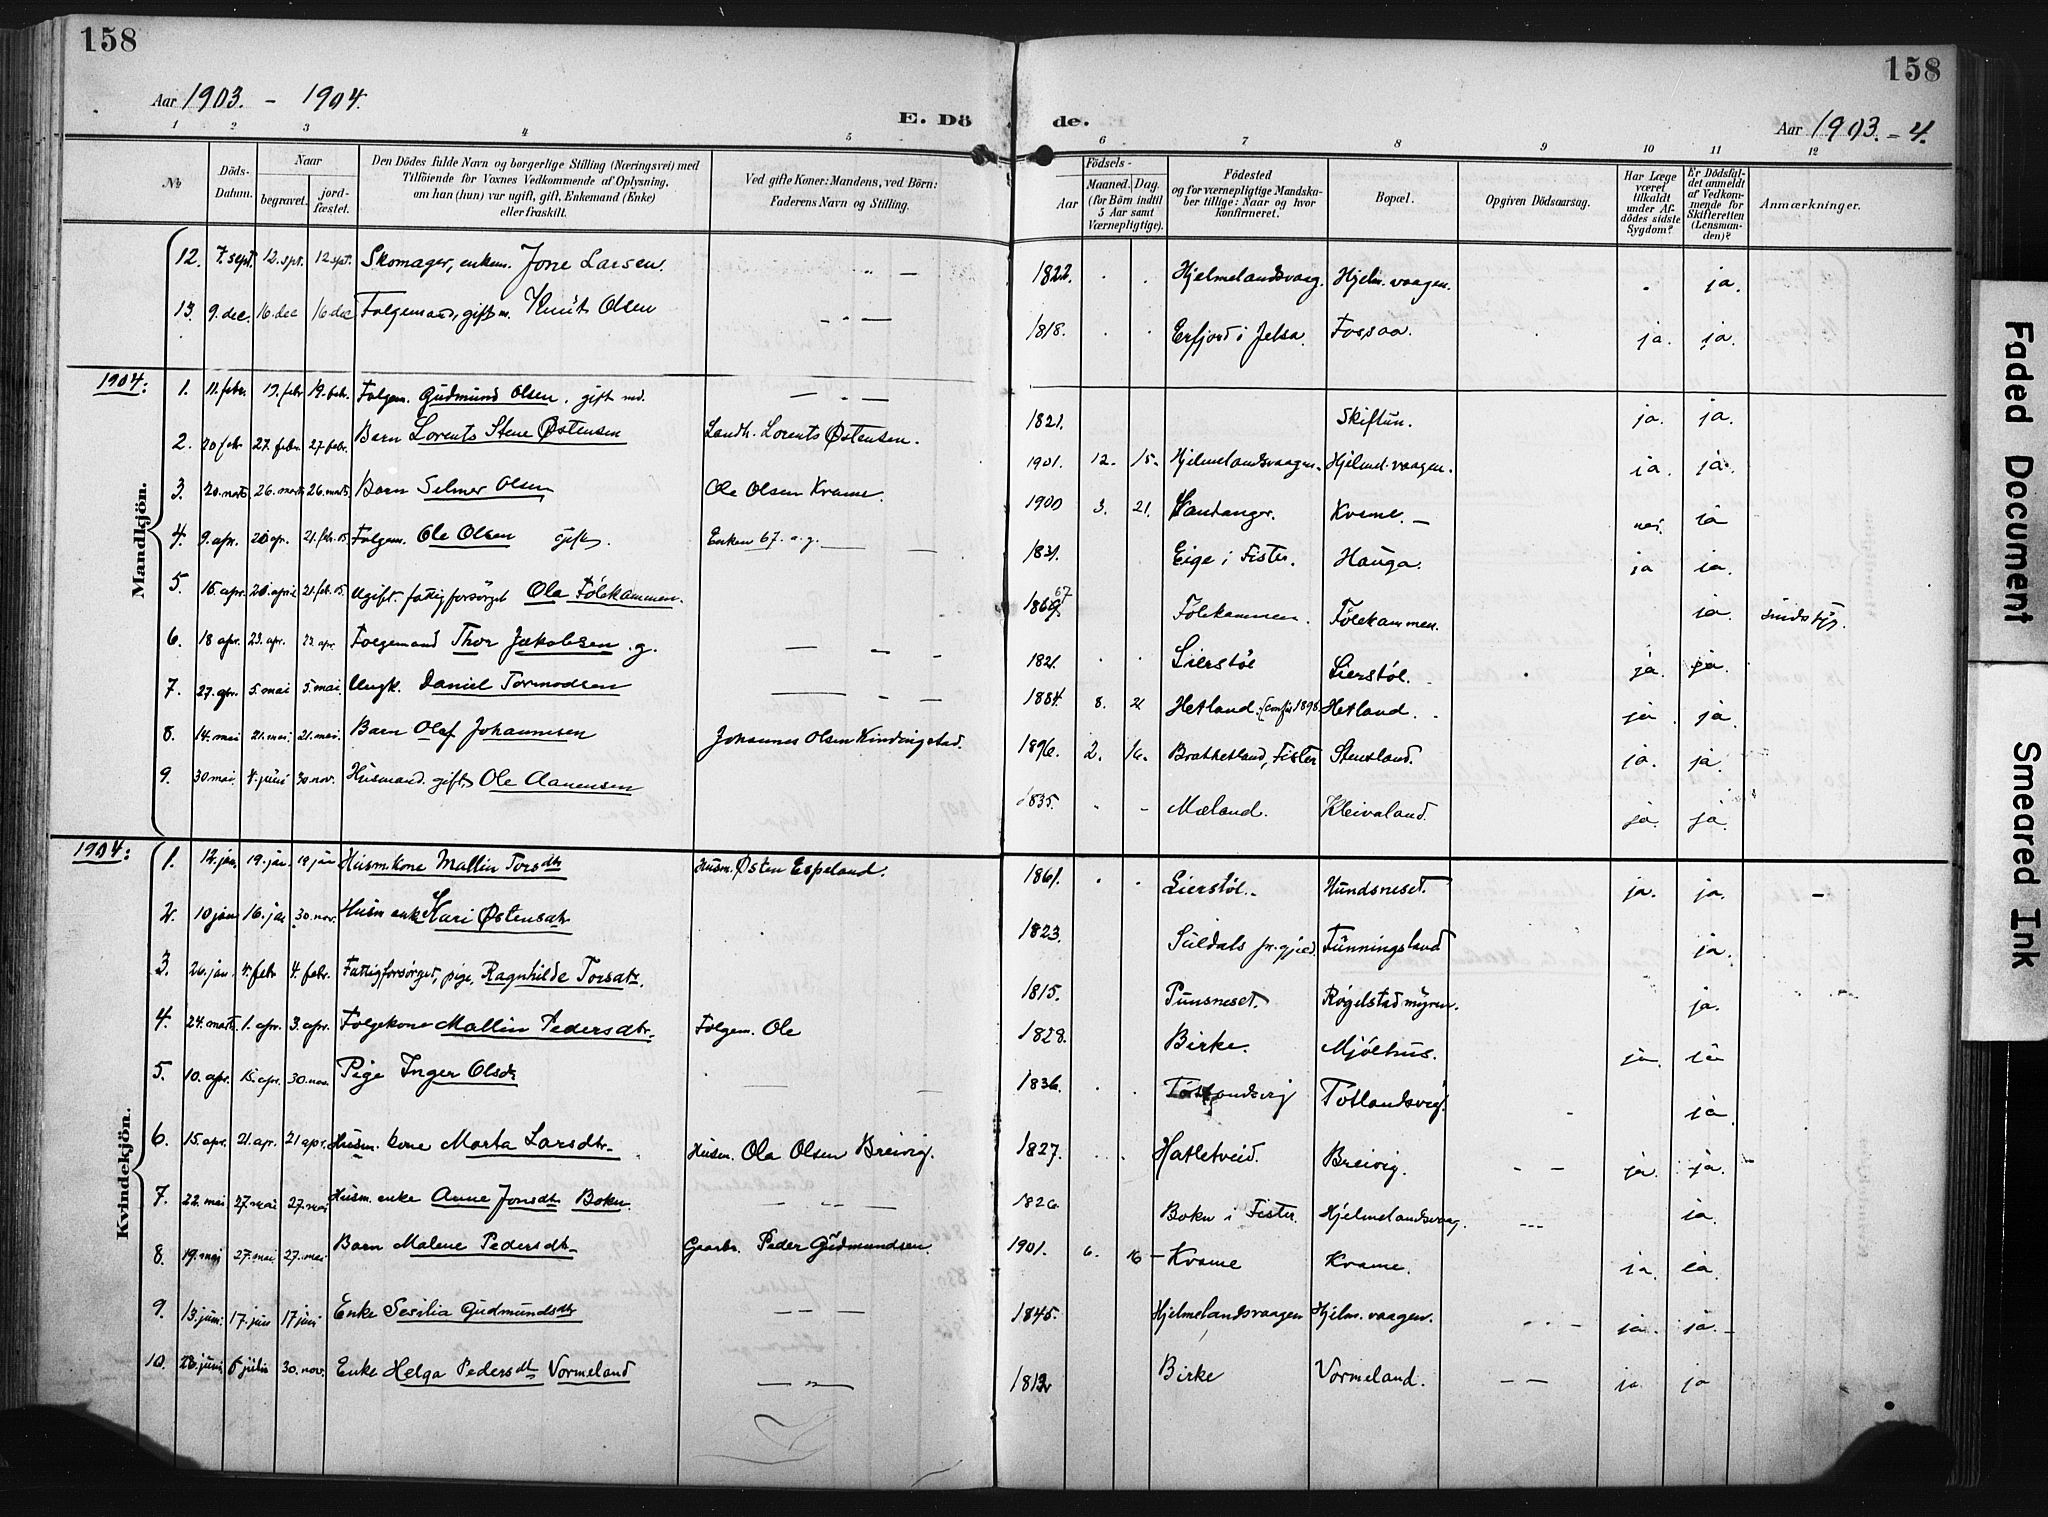 158
158
Aar 1903. - 1904.
E. Dö de.
Aar 1903. - 4.
1 2 3 4 5 6 7 8 9 10 11 12
No
Döds-Datum.
Naar
begravet.
jord-fæstet.
Den Dödes fulde Navn og borgerlige Stilling (Næringsvei) med
Tilföiende for Voxnes Vedkommende af Oplysning,
om han (hun) var ugift, gift, Enkemand (Enke)
eller fraskilt.
Ved gifte Koner: Mandens, ved Börn:
Faderens Navn og Stilling.
Födsels-
Aar
Maaned. Dag.
(for Börn indtil
5 Aar samt
Værnepligtige).
Födested
og for værnepligtige Mandska-
ber tillige: Naar og hvor
konfirmeret.
Bopæl.
Opgiven Dödsaarsag.
Har Læge
været
tilkaldt
under Af-
dödes sidste
Sygdom?
Er Dödsfal-
det anmeldt
af Vedkom-
mende for
Skifteretten
(Lensman-
den)?
Anmærkninger.
Mandkjön.
12. 7. sept. 12. spt. 12 spt. Skomager, enkem. Jone Larsen. " — 1822. Hjelmelandsvaag. Hjelm. vaagen. ja.
13. 9. dec. 16. dec 16. dec Folgemand, gift m. Knut Olsen — " — 1818. Erfjord i Jelsa. Fossaa. ja. ja.
1904:
1. 11. febr. 19. febr 19. febr. Folgem. Gudmund Olsen. gift md. — " — 1821. Skiftun. ja. ja.
2. 20 febr 27. febr. 27 febr. Barn Lorents Stene Østensen Landh. Lorents Østensen. 1901. 12. 15. Hjelmelandsvaagen. Hjelmel. vaagen. ja. ja.
3. 20. marts 26. marts 26. marts Barn Selmer Olsen Ole Olsen Kvame. 1900 3. 21. Sandanger. Kvame. — nei. ja
4. 9. apr. 20 apr. 21. febr. 05. Folgem. Ole Olsen gift. Enken 67. a. g. — 1831. Eige i Fister. Hauga. ja ja.
5. 15. apr. 20. april 21. feb. 05. Ugift. fattigforsørget Ola Følekammen. 1869. 67 Følekammen. Følekammen. ja. sindssyg.
6. 18 apr. 23. apr. 23. apr. Folgemand Thor Jakobsen. g. — " — 1821. Lierstøl Lierstøl. ja. ja.
7. 27. apr. 5. mai 5. mai Ungk. Daniel Tormodsen — " — 1884. 8. 21 Hetland. (conf. 1898. Hetland. ja. ja.
8. 14. mai 21. mai. 21. mai. Barn Olaf Johannesen Johannes Olsen Kindingstad. 1896. 2. 16. Brathetland, Fister Stensland. ja. ja.
9. 30 mai 4. juni 30. nov. Husmand. gift, Ole Aanensen 1835. Mæland. Kleivaland. ja. ja.
1904:
Kvindekjön.
1. 12. jan. 19. jan. 19 jan Husm.kone Mallin Torsdtr Husm. Østen Espeland. 1861. Lierstøl. Hundsneset. ja. ja.
2. 10 jan 16. jan 30. nov. Husm enke Kari Østensdtr 1823. Suldals pr.gjeld. Funningsland ja.
3. 26. jan. 4. febr 4. febr. Fattigforsørget, pige. Ragnhilde Torsdtr. 1815. Punsneset. Røgelstadmyren. ja.
4. 24. marts 1. apr. 3. apr. Folgekone Mallin Pedersdtr Folgem. Ole 1828. Birke. Mjølhus. ja. ja
5. 10. apr. 15. apr. 30. nov. Pige Inger Olsdtr 1836. Tøtlandsvig Tøtlandsvig. ja
6. 15. apr. 21. apr. 21 apr. Husm. kone Marta Larsdtr. Husm. Ola Olsen Breivig. 1827. Hatletveid. Breivig. — — ja. ja.
7. 22. mai 27. mai 27. mai Husm. enke Anne Jonsdtr Bokn. — " — 1826. Bokn i Fister. Hjelmelandsvaag. — ja.
8. 19. mai 27. mai 27. mai Barn Malene Pedersdtr Gaardbr. Peder Gudmundsen. 1901. 6. 16 Kvame Kvame. ja. ja.
9. 13. juni. 17. juni 17 juni Enke Sesilia Gudmundsdtr — — — 1845. Hjelmelandsvaagen Hjelm. vaagen. ja. ja.
10. 28. juni 5 juli 30. nov. Enke Helga Pedersdt Vormeland — " 1812 Birke Vormeland. — — ja. ja
Faded Document
Smeared Ink